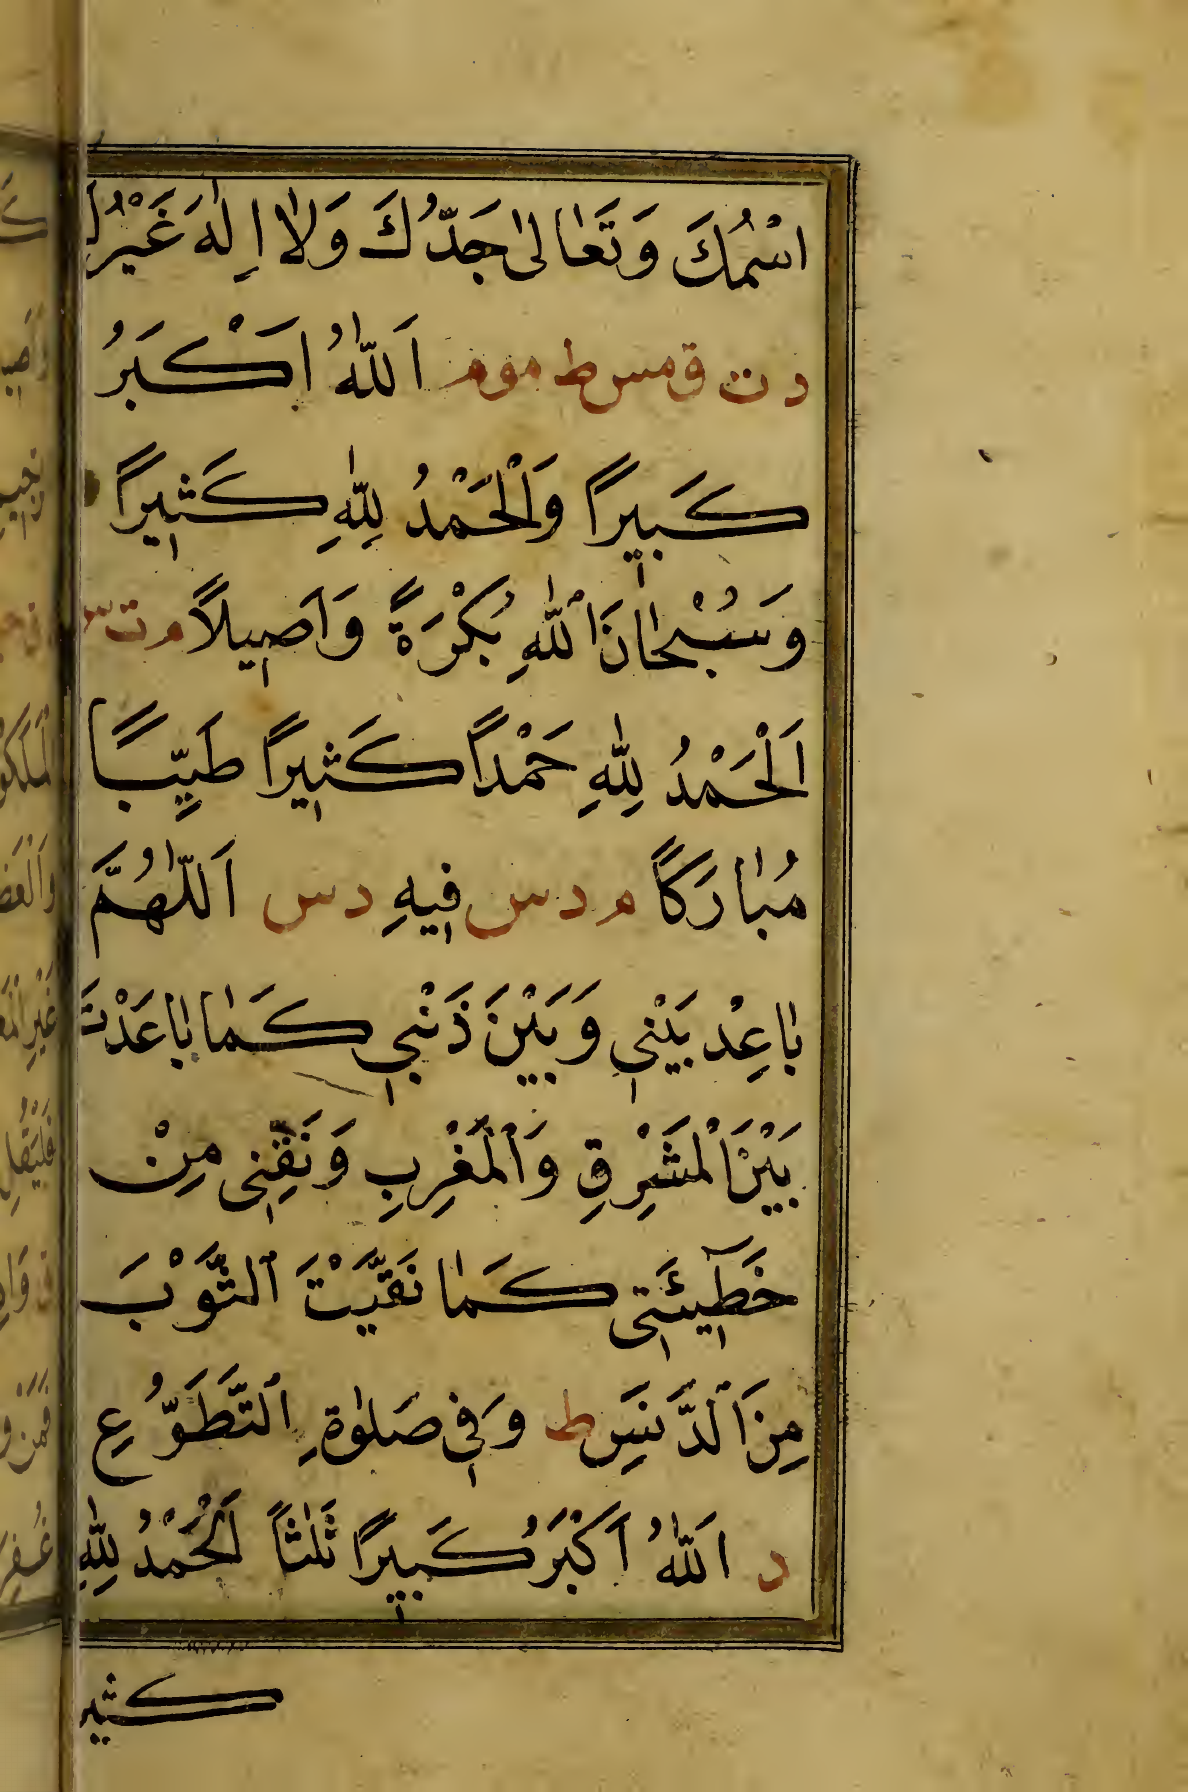 اسْمُكَ وَتَعَالٰى جَدُّكَ وَلَا اِلٰهَ غَيْرُكَ
د ت ق مس ط مو م اَللّٰهُ اَكْبَرُ
كَبِيرًا وَالْحَمْدُ لِلّٰهِ كَثِيرًا
وَسُبْحَانَ اللّٰهِ بُكْرَةً وَاَصِيلًا م ت س
اَلْحَمْدُ لِلّٰهِ حَمْدًا كَثِيرًا طَيِّبًا
مُبَارَكًا م د س فِيهِ د س اَللّٰهُمَّ
بَاعِدْ بَيْنِي وَبَيْنَ ذَنْبِي كَمَا بَاعَدْتَ
بَيْنَ الْمَشْرِقِ وَالْمَغْرِبِ وَنَقِّنِي مِنْ
خَطِيئَتِي كَمَا نَقَّيْتَ الثَّوْبَ
مِنَ الدَّنَسِ ط وَفِي صَلٰوةِ التَّطَوُّعِ
د اَللّٰهُ اَكْبَرُ كَبِيرًا ثَلٰثًا اَلْحَمْدُ لِلّٰهِ
كثير